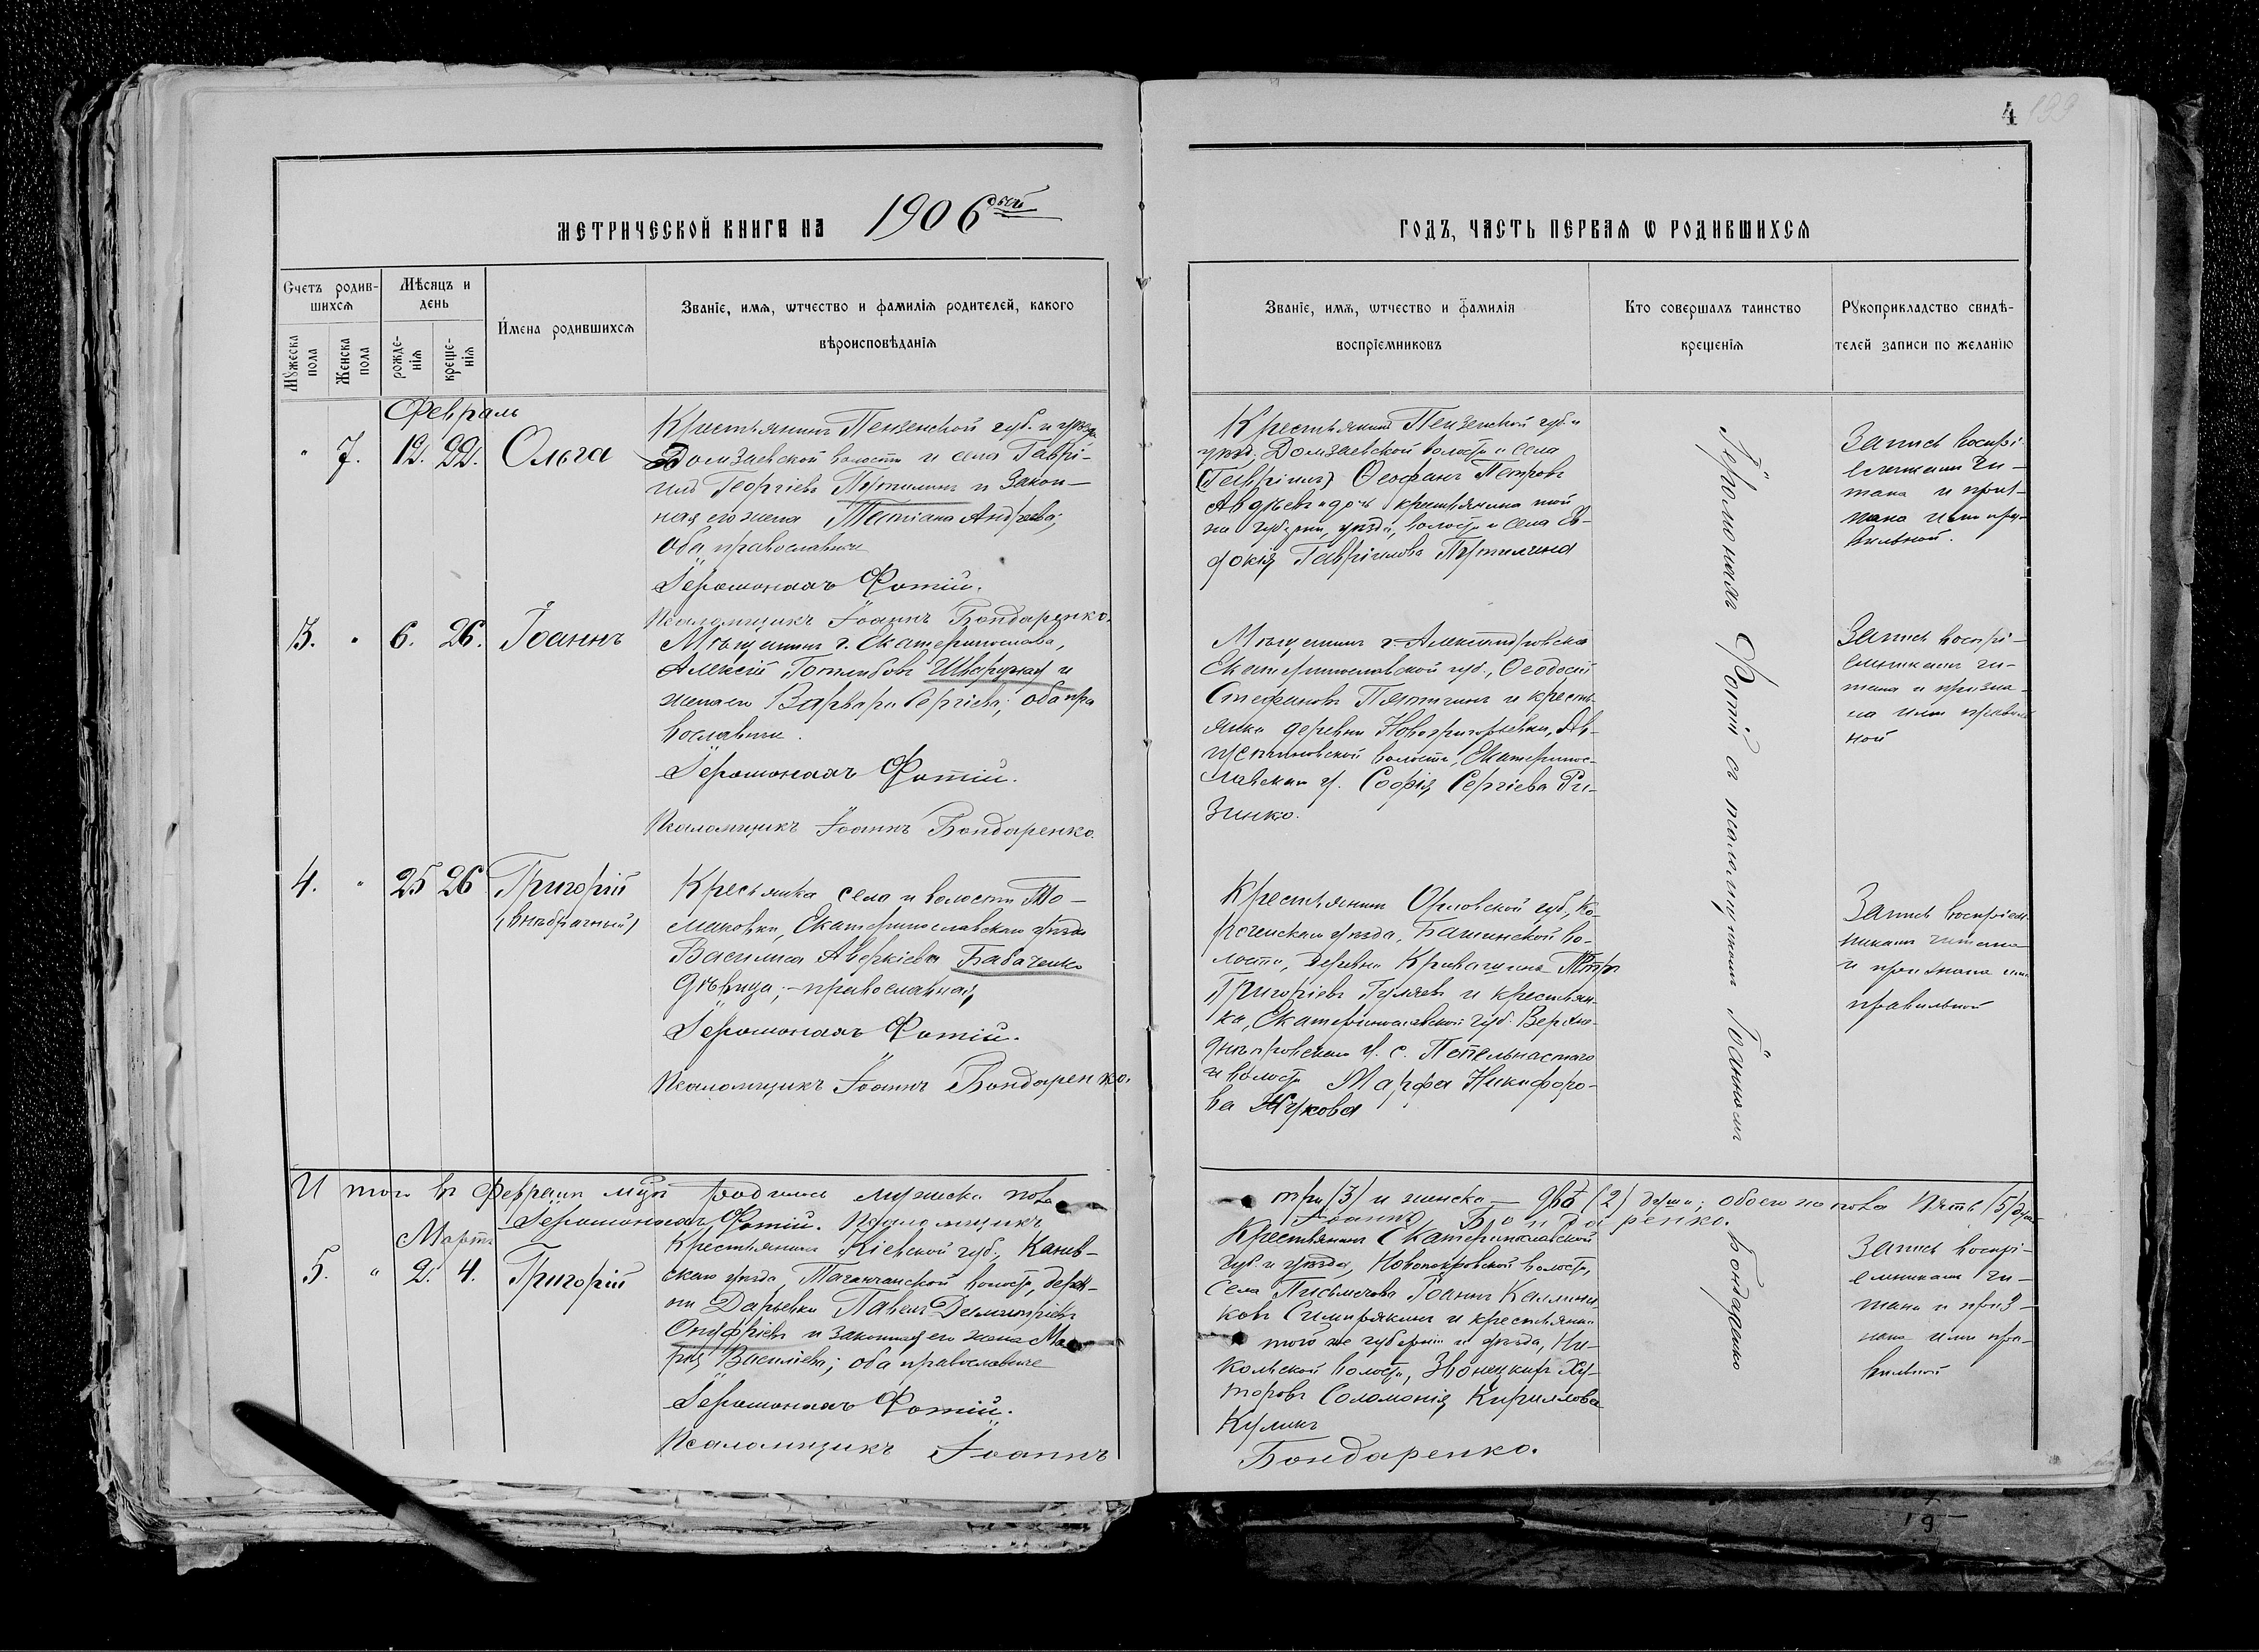 4 199
МЕТРИЧЕСКОЙ КНИГИ НА 1906 ѡй
ГОДЪ, ЧАСТЬ ПЕРВАЯ Ѡ РОДИВШИХСЯ
Счетъ родив-
шихся
Мужеска пола
Женска пола
Мѣсяцъ и день
рожде-
нія
креще-
нія
Имена родившихся
Званіе, имя, ѡтчество и фамилія родителей, какого
вѣроисповѣданія
Званіе, имя, ѡтчество и фамилія
воспріемниковъ
Кто совершалъ таинство
крещенія
Рукоприкладство свидѣ-
телей записи по желанію
Февраль
" 7. 12. 22. Ольга
Крестьянинъ Пензенской губ. и уѣзда
Долзаевской волости и села Гаврі-
илъ Георгіевъ Путилинъ и закон-
ная его жена Татіана Андреева;
оба православные
Іеромонахъ Фотій.
Псаломщикъ Іоаннъ Бондаренко.
Крестьянинъ Пензенской губ. и
уѣзд. Долзаевской волости и села
(Гавріилъ) Ѳеофанъ Петровъ
Авдѣевъ и дочь крестьянина той
же губерніи, уѣзда, волости и села Ев-
докія Гавріилова Путилина
Запись воспрі-
емниками чи-
тана и приз-
нана ими пра-
вильной.
3. " 6. 26. Іоаннъ
Мѣщанинъ г. Екатеринослава,
Алексій Готлибовъ и
жена его Варвара Сергіева; оба пра
вославные.
Іеромонахъ Фотій.
Псаломщикъ Іоаннъ Бондаренко.
Мѣщанинъ г. Александровска
Екатеринославской губ., Ѳеодосій
Стефановъ Пятигинъ и кресть-
янка деревни Новогригорьевки,
волости, Екатеринос-
лавскаго у. Софія Сергіева Ри-
зинко.
Запись воспрі-
емниками чи-
тана и призна-
на ими правиль
ной
4. " 25 26 Григорій
(внѣбрачный)
Крестьянка села и волости То-
маковки, Екатеринославскаго уѣзда
Василиса Аверкіева Бабаченко
дѣвица; – православная;
Іеромонахъ Фотій.
Псаломщикъ Іоаннъ Бондаренко.
Крестьянинъ Орловской губ.,
уѣзда, во-
лости, деревни Петръ
Григоріевъ Гуляевъ и крестьян-
ка, Екатеринославской губ. Верхне-
днѣпровскаго у. с. Попельнастаго
и волости Марфа Никифоро-
ва Жукова
Запись воспріем
никами читана
и признана ими
правильной
Іеромонахъ Фотій съ псаломщикомъ Іоанномъ Бондаренко
Итого въ Февралѣ мцѣ родилось мужеска пола
три (3) и женска — двѣ (2) души; обоего пола пять (5) душъ
Іеромонахъ Фотій. Псаломщикъ
Іоаннъ Бондаренко.
Мартъ
5. " 2. 4. Григорій
Крестьянинъ Кіевской губ., Канев-
скаго уѣзда, Таганчанской волости, дерев-
ни Дарьевки Павелъ Димитріевъ
Онуфріевъ и законная его жена Ма-
рія Василіева; оба православные
Іеромонахъ Фотій.
Псаломщикъ Іоаннъ
Бондаренко.
Крестьянинъ Екатеринославской
губ. и уѣзда, Новопокровской волости,
села Письмечева Іоаннъ Каллини-
ковъ и крестьянка
той же губерніи и уѣзда, Ни-
кольской волости, Звонецкихъ Ху-
торовъ Соломонія Кириллова
Куликъ
Запись воспрі-
емниками чи-
тана и приз-
нана ими пра-
вильной